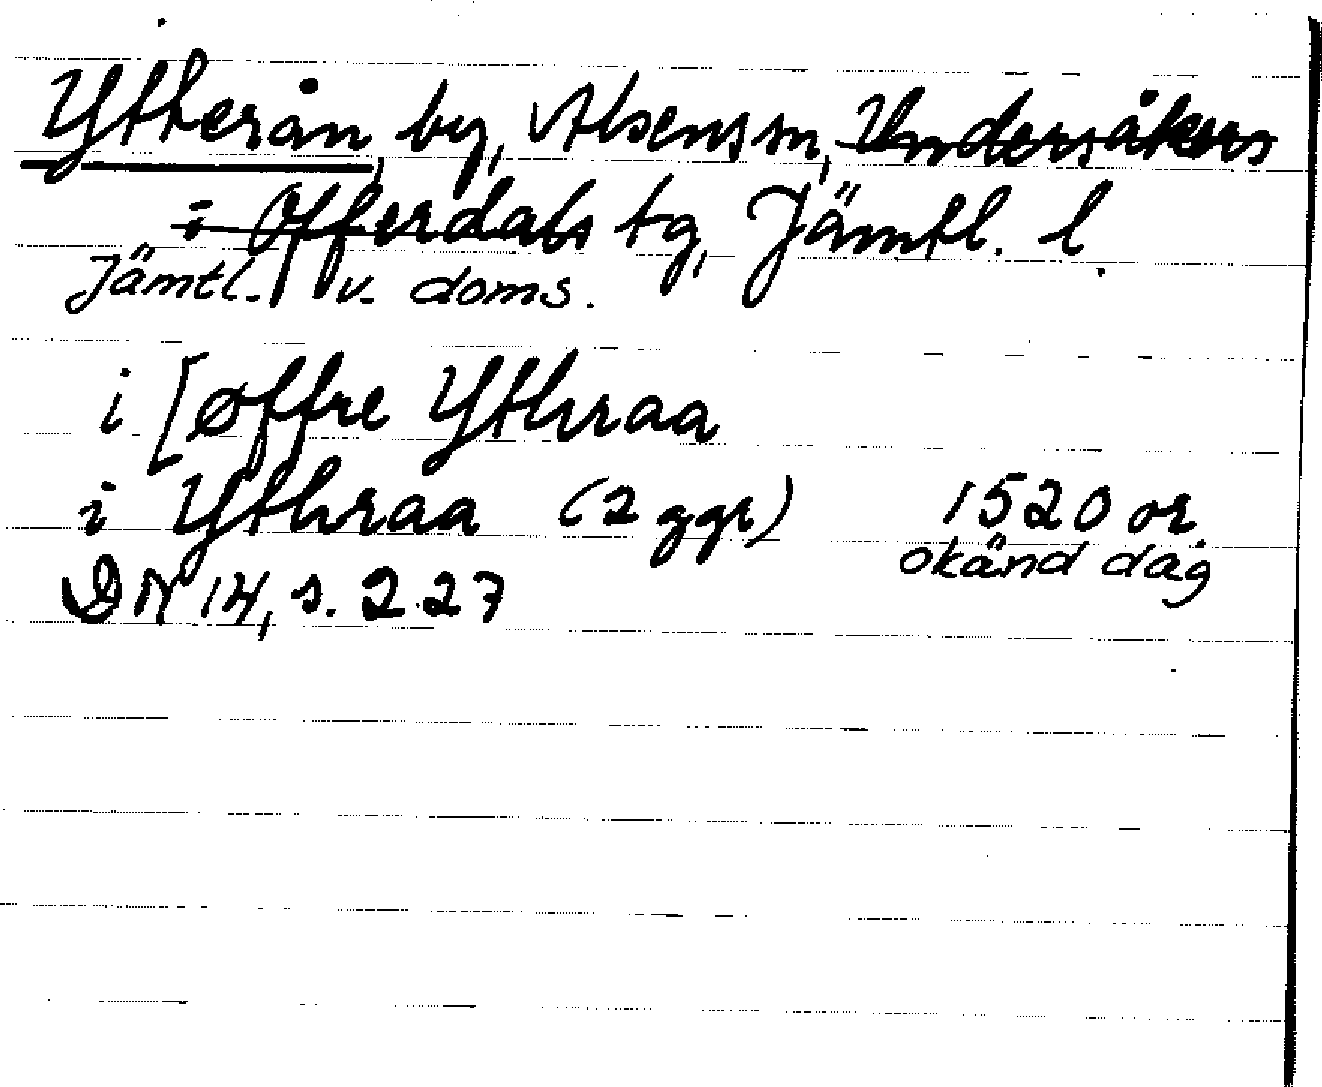 Ytterån, by, Alsens sn, Undersåkers
i Offerdals tg, Jämtl. l.
Jämtl. v. doms.
i [øffre Ythraa
i Ythraa (2 ggr) 1520 or.
okänd dag
DN 14, s. 227